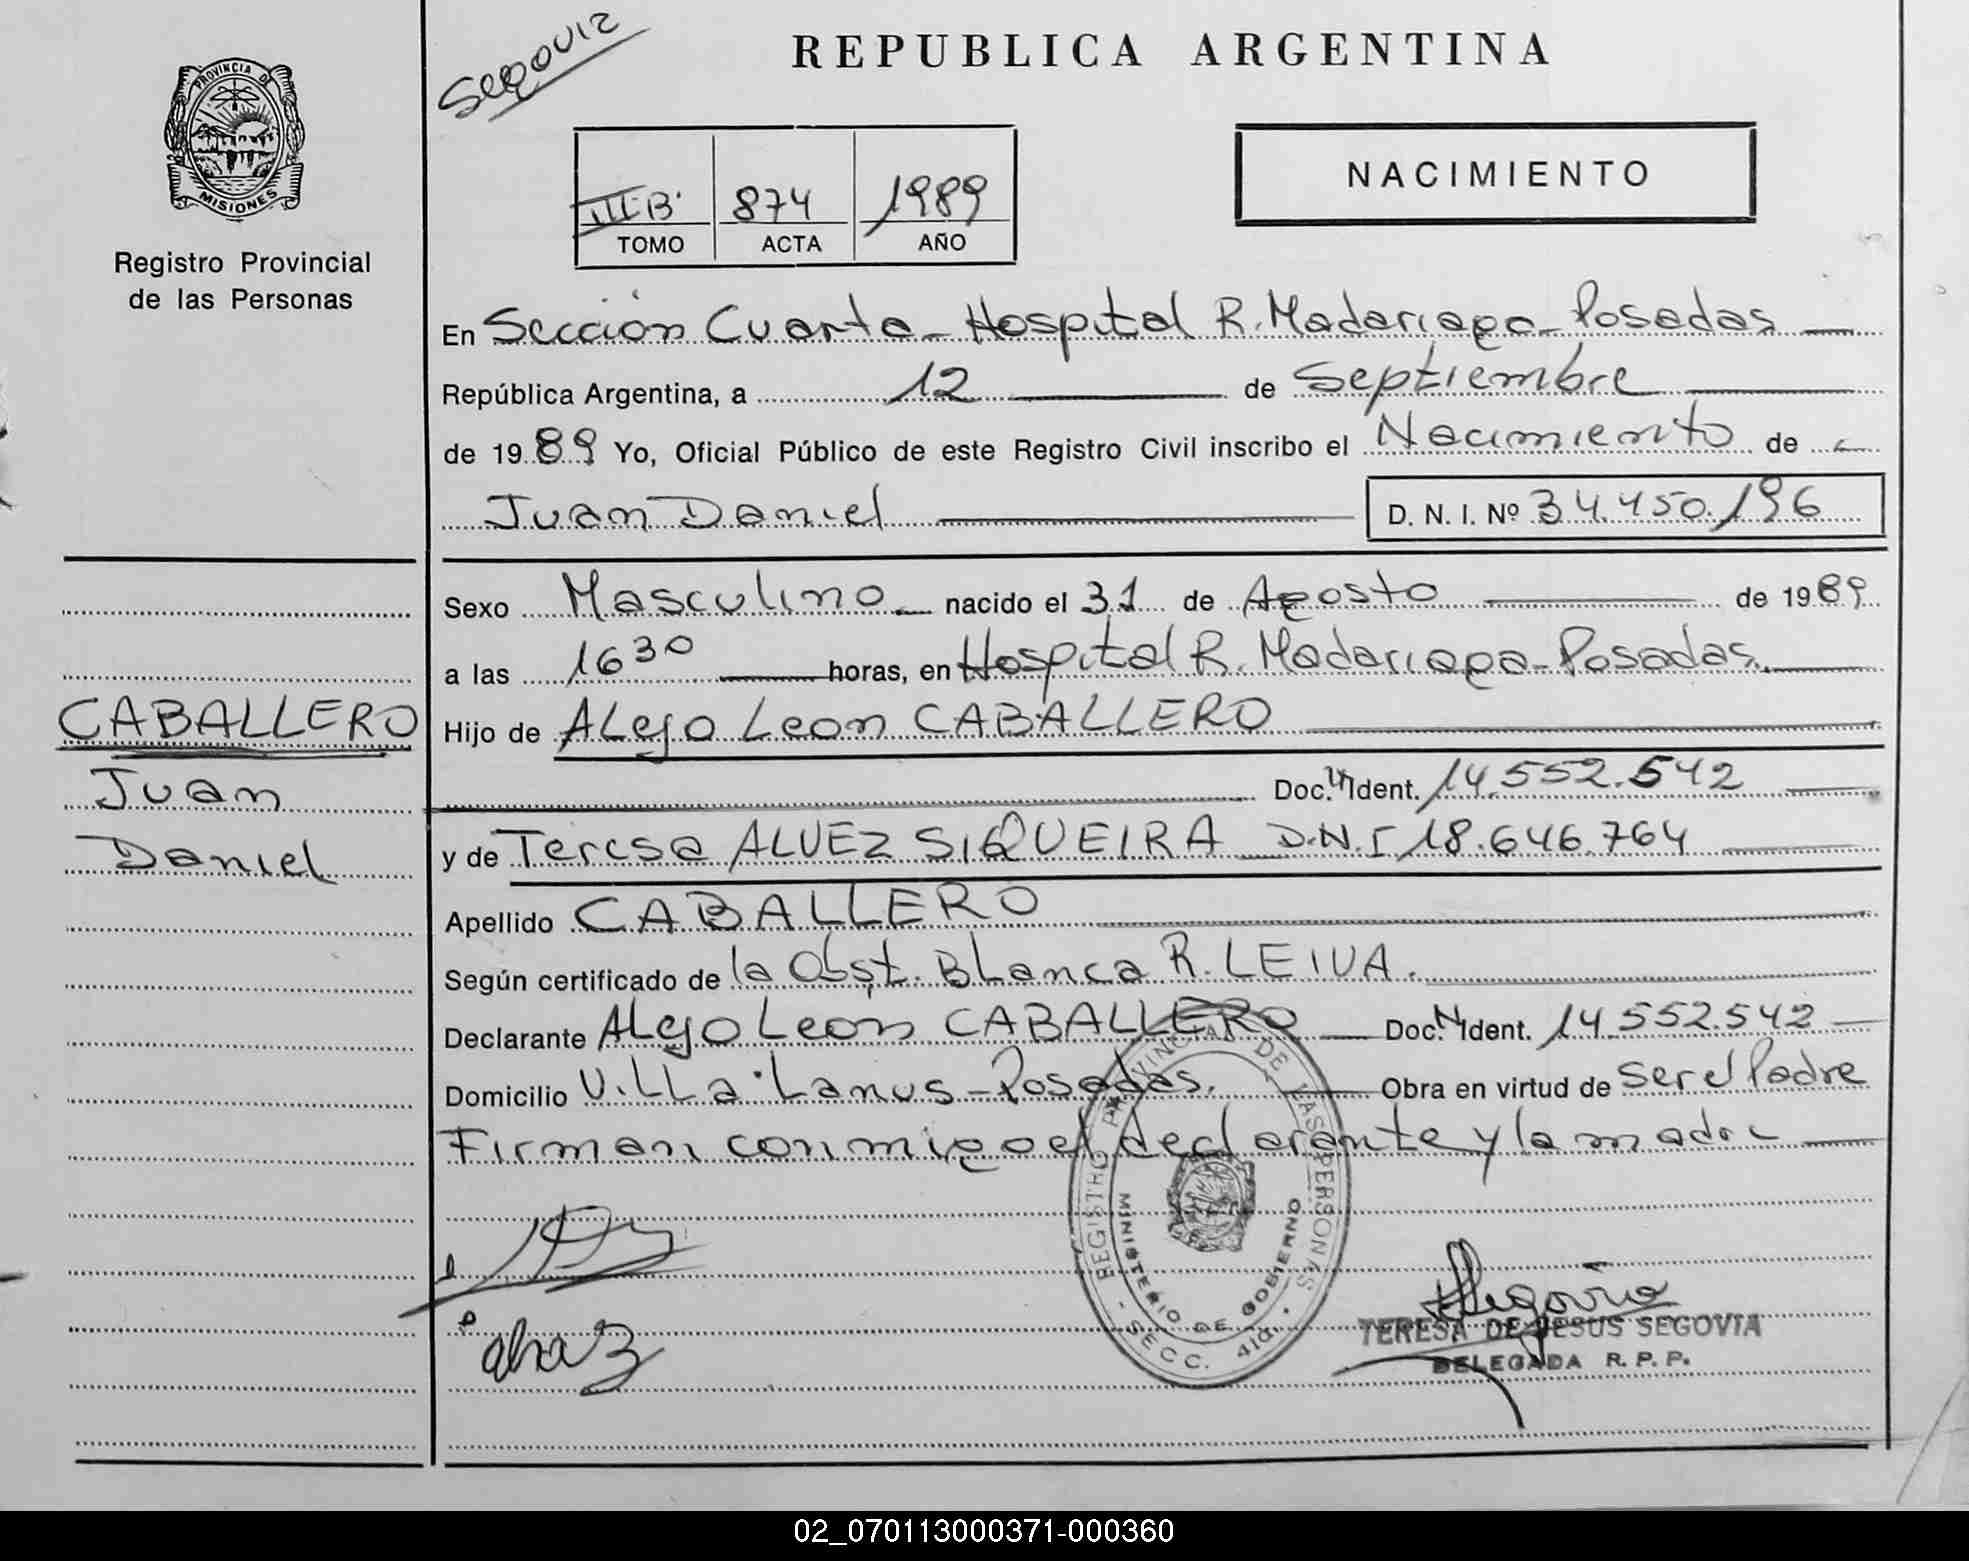 Segovia
REPUBLICA ARGENTINA
PROVINCIA DE MISIONES
Registro Provincial
de las Personas
IIIB. 874 1989
TOMO ACTA AÑO
NACIMIENTO
En Sección Cuarta - Hospital R. Madariaga - Posadas
República Argentina, a 12 de Septiembre
de 1989 Yo, Oficial Público de este Registro Civil inscribo el Nacimiento de
Juan Daniel D. N. I. Nº 34.450.196
Sexo Masculino nacido el 31 de Agosto de 1989
a las 16 30 horas, en Hospital R. Madariaga - Posadas.
CABALLERO
Juan
Daniel
Hijo de ALejo Leon CABALLERO
Doc. Ident. 14.552.542
y de Teresa ALVEZ SIQUEIRA D.N.I 18.646.764
Apellido CABALLERO
Según certificado de la Obst. Blanca R. LEIVA.
Declarante ALejo Leon CABALLERO Doc. Ident. 14.552.542
Domicilio Villa Lanus - Posadas. Obra en virtud de ser el Padre
Firman conmigo el declarante y la madre
REGISTRO PROVINCIAL DE LAS PERSONAS
MINISTERIO DE GOBIERNO
- SECC. 4ta. -
Segovia
TERESA DE JESUS SEGOVIA
DELEGADA R. P. P.
02_070113000371-000360